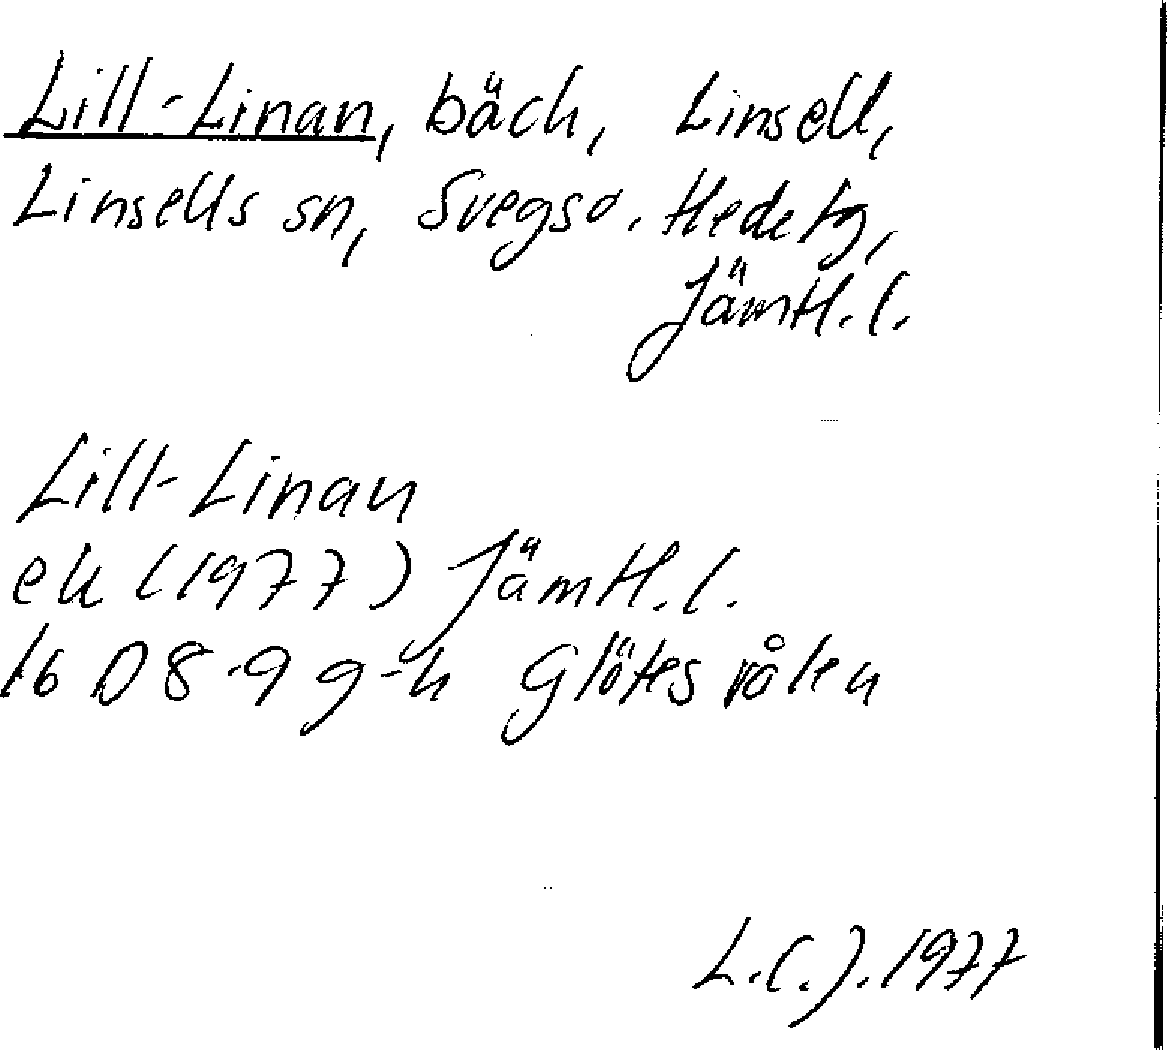 Lill-Linan, bäck, Linsell,
Linsells sn, Svegs o. Hede tg,
Jämtl. l.
Lill-Linan
ek (1977) Jämtl. l.
16 D 8-9 g-h Glötesvålen
L.C.J. 1977